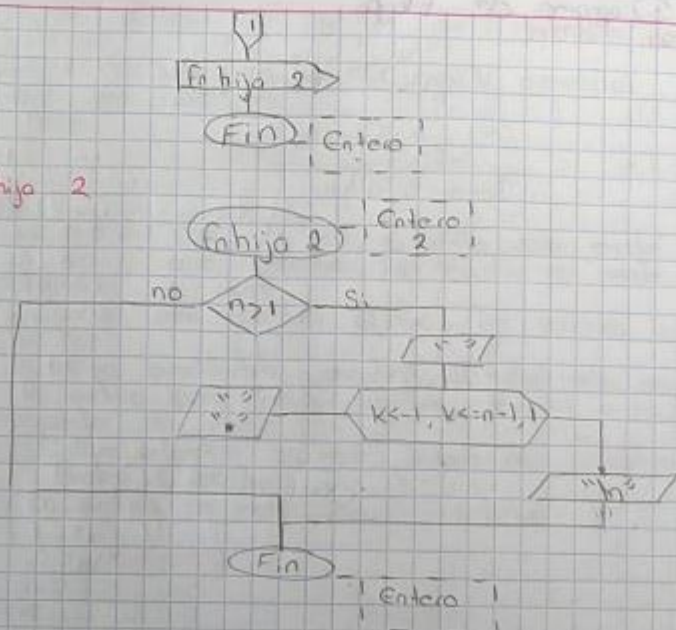 1
Fn hija 2
Fin
Entero
hija 2
Fn hija 2
Entero
2
no
n>1
Si
" "
" "
" . "
k<-1, k<=n-1, 1
"\n"
Fin
Entero